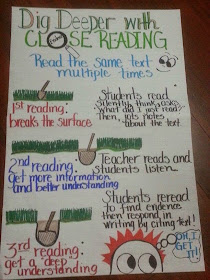 Dig Deeper with
CLOSE READING
Read the same text
multiple times
1st reading:
breaks the surface
Students read
silently, think, ask:
what did I just read?
Then jots notes
about the text
2nd reading:
get more information
and better understanding
Teacher reads and
Students listen
3rd reading:
get a deep
understanding
Students reread
to find evidence
then respond in
writing by citing text!
OH, I
GET
IT!